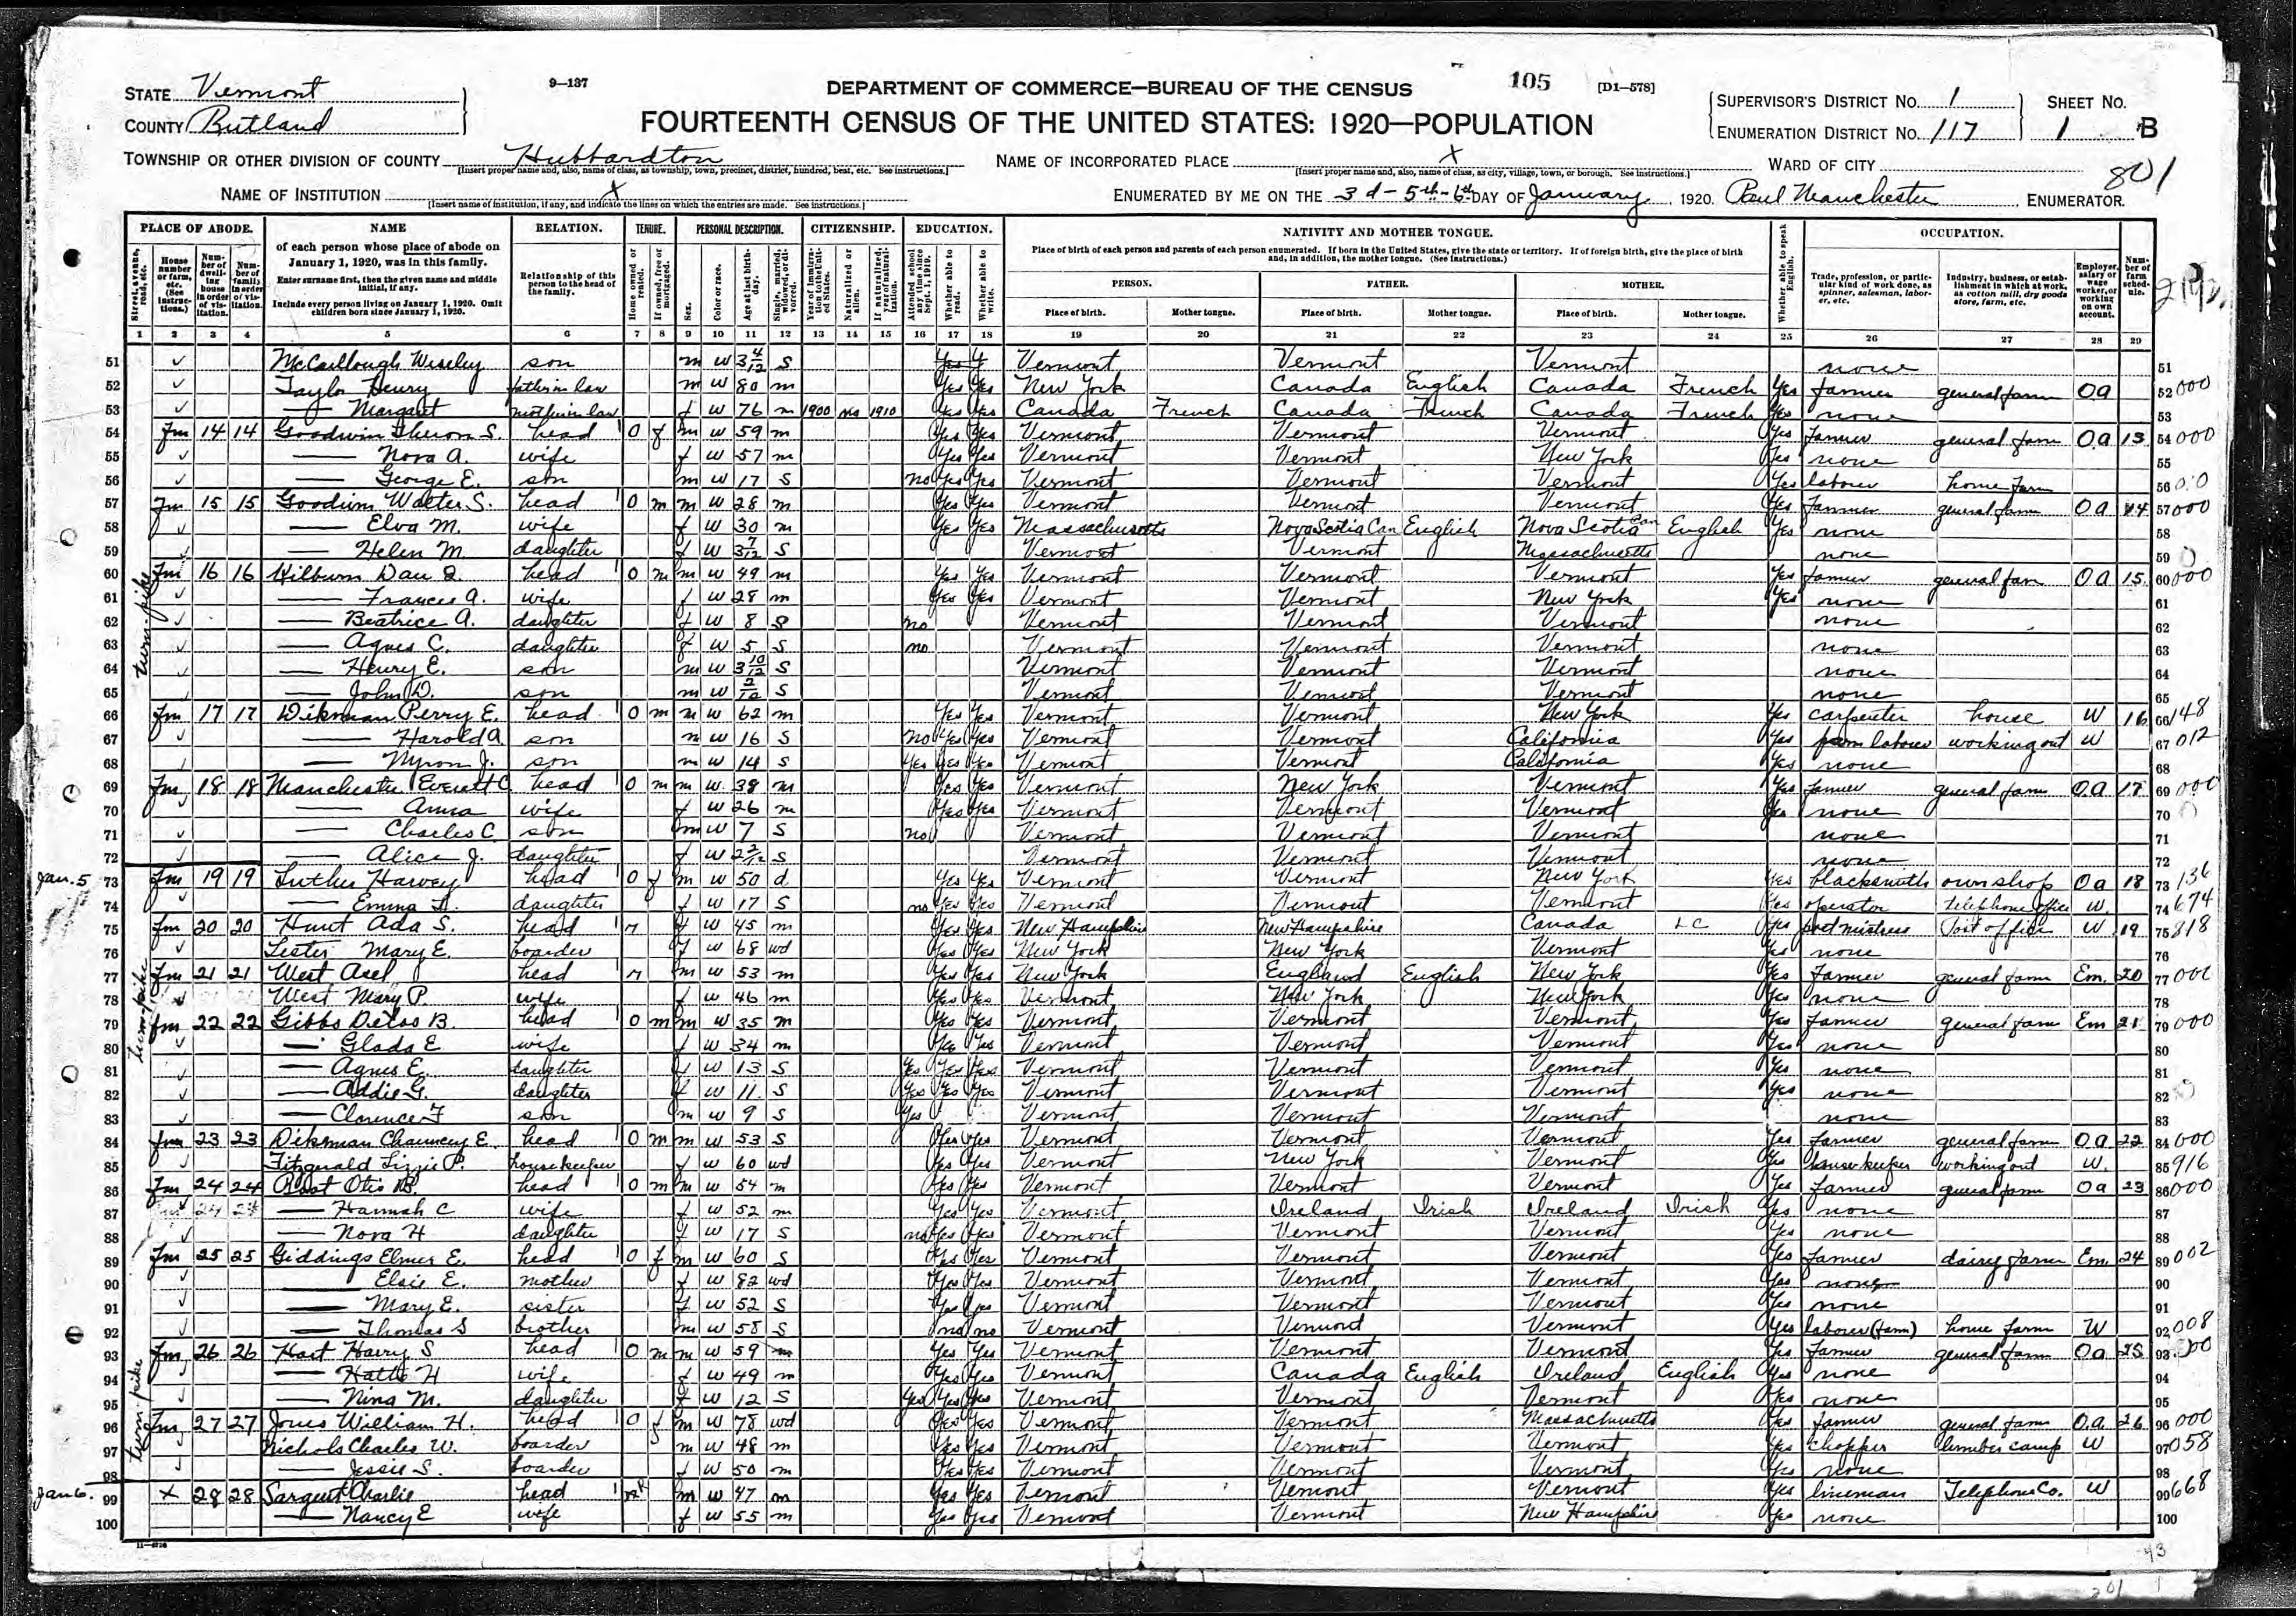 9—137
DEPARTMENT OF COMMERCE—BUREAU OF THE CENSUS
105
[D1—578]
STATE Vermont
COUNTY Rutland
FOURTEENTH CENSUS OF THE UNITED STATES: 1920—POPULATION
SUPERVISOR'S DISTRICT No. 1
ENUMERATION DISTRICT No. 117
SHEET No.
1 B
TOWNSHIP OR OTHER DIVISION OF COUNTY Hubbardton
[Insert proper name and, also, name of class, as township, town, precinct, district, hundred, beat, etc. See instructions.]
NAME OF INCORPORATED PLACE X
[Insert proper name and, also, name of class, as city, village, town, or borough. See instructions.]
WARD OF CITY
801
NAME OF INSTITUTION X
[Insert name of institution, if any, and indicate the lines on which the entries are made. See instructions.]
ENUMERATED BY ME ON THE 3d - 5th - 6th DAY OF January, 1920. Paul Manchester, ENUMERATOR.
PLACE OF ABODE. NAME RELATION. TENURE. PERSONAL DESCRIPTION. CITIZENSHIP. EDUCATION. NATIVITY AND MOTHER TONGUE. OCCUPATION.
of each person whose place of abode on January 1, 1920, was in this family.
Enter surname first, then the given name and middle initial, if any.
Include every person living on January 1, 1920. Omit children born since January 1, 1920.
Relationship of this person to the head of the family.
Place of birth of each person and parents of each person enumerated. If born in the United States, give the state or territory. If of foreign birth, give the place of birth and, in addition, the mother tongue. (See instructions.)
PERSON. FATHER. MOTHER.
Place of birth. Mother tongue. Place of birth. Mother tongue. Place of birth. Mother tongue.
Whether able to speak English.
Trade, profession, or particular kind of work done, as spinner, salesman, laborer, etc.
Industry, business, or establishment in which at work, as cotton mill, dry goods store, farm, etc.
Employer, salary or wage worker, or working on own account.
Number of farm schedule.
1 2 3 4 5 6 7 8 9 10 11 12 13 14 15 16 17 18 19 20 21 22 23 24 25 26 27 28 29
51 McCullough Weseley son m W 3 4/12 S Vermont Vermont Vermont none 51
52 Taylor Henry father in law m W 80 m Yes Yes New York Canada English Canada French Yes farmer general farm OA 52 000
53 — Margaret mother in law f W 76 m 1900 na 1910 Yes Yes Canada French Canada French Canada French Yes none 53
54 Fm 14 14 Goodwin Theron S. head O f m W 59 m Yes Yes Vermont Vermont Vermont Yes farmer general farm OA 13 54 000
55 — Nora A. wife f W 57 m Yes Yes Vermont Vermont New York Yes none 55
56 — George E. son m W 17 S no Yes Yes Vermont Vermont Vermont Yes laborer home farm 56
57 Fm 15 15 Goodwin Walter S. head O m m W 28 m Yes Yes Vermont Vermont Vermont Yes farmer general farm OA 14 57 000
58 — Elva M. wife f W 30 m Yes Yes Massachusetts Nova Scotia Can English Nova Scotia Can English Yes none 58
59 — Helen M. daughter f W 3 7/12 S Vermont Vermont Massachusetts none 59
60 Fm 16 16 Hilburn Dan head O m m W 49 m Yes Yes Vermont Vermont Vermont Yes farmer general farm OA 15 60 000
61 — Frances A. wife f W 28 m Yes Yes Vermont Vermont New York Yes none 61
62 — Beatrice A. daughter f W 8 S no Vermont Vermont Vermont none 62
63 — Agnes C. daughter f W 5 S no Vermont Vermont Vermont none 63
64 — Henry E. son m W 3 10/12 S Vermont Vermont Vermont none 64
65 — John D. son m W 2/12 S Vermont Vermont Vermont none 65
66 Fm 17 17 Dikman Perry E. head O m m W 62 m Yes Yes Vermont Vermont New York Yes carpenter house W 16 66 148
67 — Harold A. son m W 16 S No Yes Yes Vermont Vermont California Yes farm laborer working out W 67 012
68 — Myron J. son m W 14 S Yes Yes Yes Vermont Vermont California Yes none 68
69 Fm 18 18 Manchester Everett C. head O m m W 38 m Yes Yes Vermont New York Vermont Yes farmer general farm OA 17 69 000
70 — Anna wife f W 26 m Yes Yes Vermont Vermont Vermont Yes none 70
71 — Charles C. son m W 7 S no Vermont Vermont Vermont none 71
72 — Alice J. daughter f W 2 2/12 S Vermont Vermont Vermont none 72
Jan. 5 73 Fm 19 19 Luther Harvey head O f m W 50 d Yes Yes Vermont Vermont New York Yes blacksmith own shop OA 18 73 136
74 — Emma daughter f W 17 S no Yes Yes Vermont Vermont Vermont Yes operator telephone office W. 74 674
75 Fm 20 20 Hunt Ada S. head r f W 45 m Yes Yes New Hampshire New Hampshire Canada Yes post mistress Post office W 19 75 818
76 Lester Mary E. boarder f W 68 wd Yes Yes New York New York Vermont Yes none 76
77 Fm 21 21 West Asel head r m W 53 m Yes Yes New York England English New York Yes farmer general farm Em. 20 77 000
78 West Mary P. wife f W 46 m Yes Yes Vermont New York New York Yes none 78
79 Fm 22 22 Gibbs Delos B. head O m m W 35 m Yes Yes Vermont Vermont Vermont Yes farmer general farm Em 21 79 000
80 — Glada E. wife f W 34 m Yes Yes Vermont Vermont Vermont Yes none 80
81 — Agnes E. daughter f W 13 S Yes Yes Yes Vermont Vermont Vermont Yes none 81
82 — Addie G. daughter f W 11 S Yes Yes Yes Vermont Vermont Vermont Yes none 82
83 — Clarence F. son m W 9 S Yes Vermont Vermont Vermont none 83
84 Fm 23 23 Dikman Chauncey E. head O m m W 53 S Yes Yes Vermont Vermont Vermont Yes farmer general farm OA 22 84 000
85 Fitzgerald Lizzie P. housekeeper f W 60 wd Yes Yes Vermont New York Vermont Yes housekeeper working out W. 85 916
86 Fm 24 24 Otis head O m m W 54 m Yes Yes Vermont Vermont Vermont Yes farmer general farm OA 23 86 000
87 — Hannah C wife f W 52 m Yes Yes Vermont Ireland Irish Ireland Irish Yes none 87
88 — Nora H daughter f W 17 S no Yes Yes Vermont Vermont Vermont Yes none 88
89 Fm 25 25 Giddings Elmer E. head O f m W 60 S Yes Yes Vermont Vermont Vermont Yes farmer dairy farm Em. 24 89 002
90 — Elsie E. mother f W 82 wd Yes Yes Vermont Vermont Vermont Yes none 90
91 — Mary E. sister f W 52 S Yes Yes Vermont Vermont Vermont Yes none 91
92 — Thomas S brother m W 58 S no no Vermont Vermont Vermont Yes laborer (farm) home farm W 92 008
93 Fm 26 26 Hart Harry S head O m m W 59 m Yes Yes Vermont Vermont Vermont Yes farmer general farm OA 25 93 000
94 — Hattie H wife f W 49 m Yes Yes Vermont Canada English Ireland English Yes none 94
95 — Nina M. daughter f W 12 S Yes Yes Yes Vermont Vermont Vermont Yes none 95
96 Fm 27 27 Jones William H. head O f m W 78 wd Yes Yes Vermont Vermont Massachusetts Yes farmer general farm OA 26 96 000
97 Nichols Charles W. boarder m W 48 m Yes Yes Vermont Vermont Vermont Yes chopper lumber camp W 97 058
98 — Jessie S. boarder f W 50 m Yes Yes Vermont Vermont Vermont Yes none 98
Jan 6. 99 X 28 28 Sargent Charlie head R m W 47 m Yes Yes Vermont Vermont Vermont Yes lineman Telephone Co. W 99 668
100 — Nancy E wife f W 55 m Yes Yes Vermont Vermont New Hampshire Yes none 100